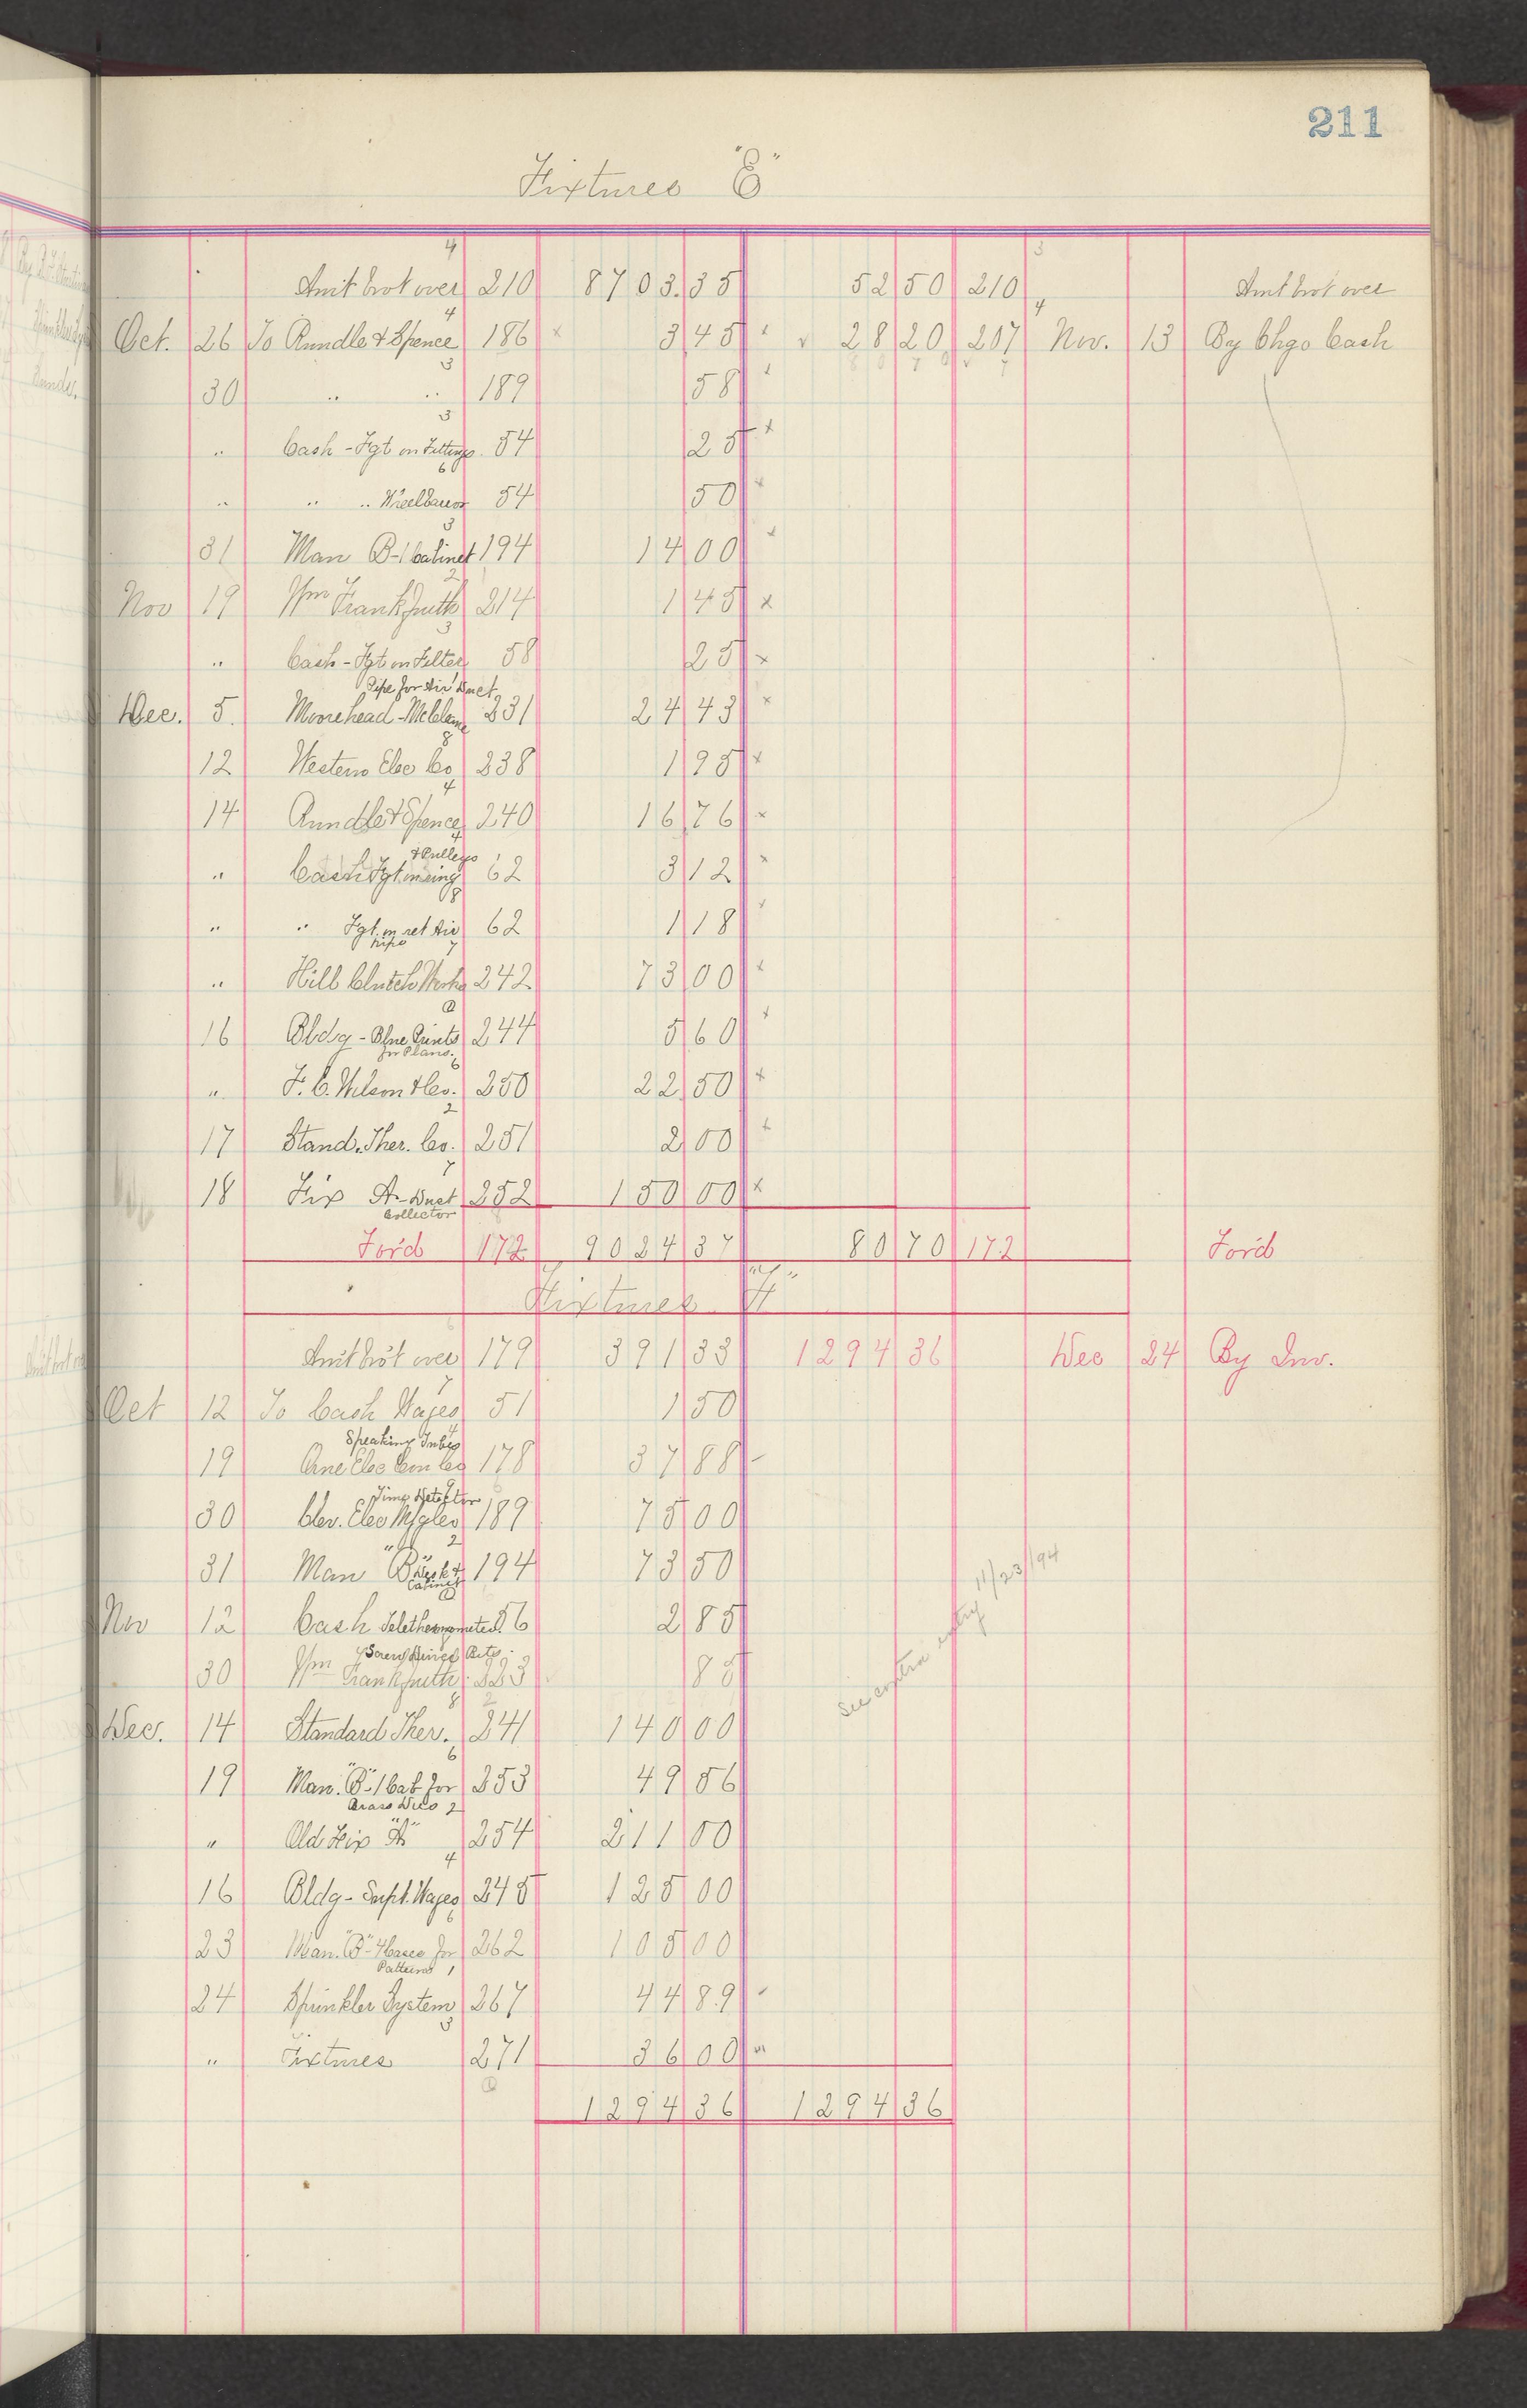 211
Fixtures "E"
4 3
Amt brot over 210 8703.35 52 50 210 Amt brot over
4 4
Oct. 26 To Rundle & Spence 186 x 3 45 28 20 207 Nov. 13 By Chgo Cash
3
30 " " 189 58
3
" Cash - Fgt on Fittings 54 25 x
6
" " " Wheelbarrow 54 50 x
3
31 Man B-1 Cabinet 194 14 00 x
2
Nov 19 Wm Frankfurth 214 1 45 x
3
" Cash - Fgt on Filter 58 25 x
Pipe for Air Duct
Dec. 5. Moorehead - McCleane 231 24 43 x
8
12 Western Elec Co 238 1 95 x
4
14 Rundle & Spence 240 16 76 x
4
& Pulleys
" Cash Fgt on 62 3 12 x
8
" " Fgt. on ret Air 62 1 18 x
pipe 7
" Hill Clutch Works 242 73 00 x
16 Bldg - Blue Prints 244 5 60 x
for Plans. 6
" F. C. Wilson & Co. 250 22 50 x
2
17 Stand. Ther. Co. 251 2 00 x
7
18 Fix A - Dust 252 150 00 x
Collector
For'd 172 9024 37 80 70 172 For'd
Fixtures "F"
Amt bro't over 179 391 33 1294 36 Dec 24 By Inv.
7
Oct 12 To Cash Wages 51 1 50
4
Speaking Tubes
19 Elec Co 178 37 88
Time Detector
30 Clev. Elec Mfg Co 189 75 00
2
31 Man "B" Desk & 194 73 50
Cabinet
Nov 12 Cash Telethermometer 56 2 85
Bits
30 Wm Frankfurth 223 85
8
Dec. 14 Standard Ther. 241 140 00
6
19 Man. "B" - 1 Cab for 253 49 56
Brass Dies 2
" Old Fix "A" 254 211 00
4
16 Bldg - Supt. Wages 245 125 00
6
23 Man. "B" - 4 Cases for 262 105 00
Patterns 1
24 Sprinkler System 267 44 89
3
" Fixtures 271 36 00
1294 36 1294 36
See contra entry 11/23/94